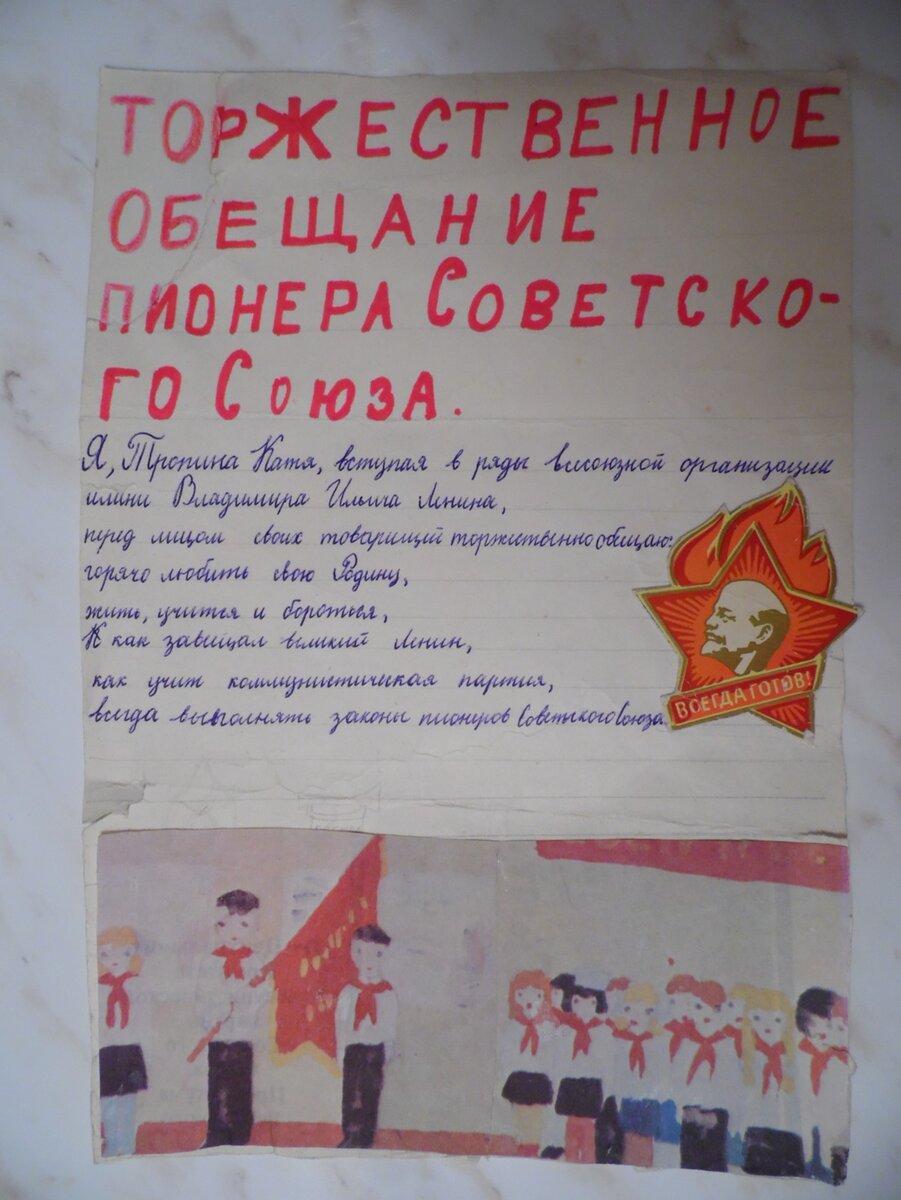 ТОРЖЕСТВЕННОЕ
ОБЕЩАНИЕ
ПИОНЕРА СОВЕТСКО-
ГО СОЮЗА.
Я, Тропина Катя, вступая в ряды всесоюзной организации
имини Владимира Ильича Ленина,
перед лицом своих товарищей торжественно обещаю:
горячо любить свою Родину,
жить, учится и бороться,
К как завещал великий Ленин,
как учит коммунистическая партия,
всегда выполнять законы пионеров Советского Союза
ВСЕГДА ГОТОВ!